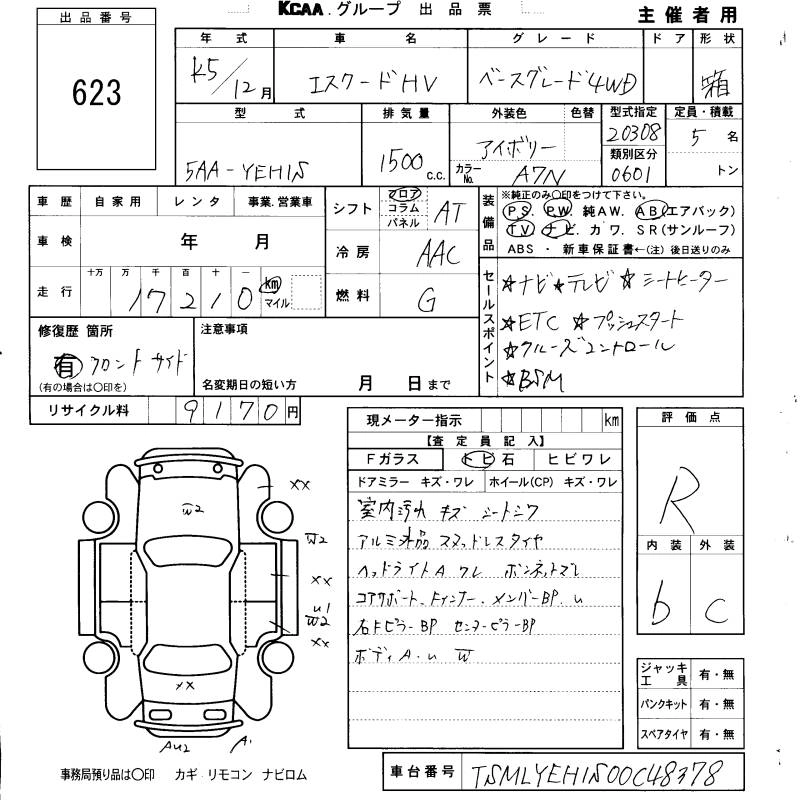 KCAA.グループ 出品票
主催者用
出品番号
623
年式 車名 グレード ドア 形状
R5/12月 エスクードHV ベースグレード4WD 箱
型式 排気量 外装色 色替 型式指定 定員・積載
5AA-YEH1S 1500c.c. アイボリー 20308 5名
類別区分
カラーNo. A7N 0601 トン
車歴 自家用 レンタ 事業.営業車
車検 年 月
十万 万 千 百 十 一
走行 17210 km マイル
シフト フロア コラム パネル AT
冷房 AAC
燃料 G
装備品
※純正のみ○印をつけて下さい。
PS. PW. 純AW. AB(エアバック)
TV ナビ. カワ. SR(サンルーフ)
ABS ・ 新車保証書←(注) 後日送りのみ
セールスポイント
☆ナビ☆テレビ ☆シートヒーター
☆ETC ☆プッシュスタート
☆クルーズコントロール
☆BSM
修復歴 箇所
有 フロント サイド
(有の場合は○印を)
注意事項
名変期日の短い方 月 日まで
リサイクル料 9170円
現メーター指示 km
【査定員記入】
Fガラス トビ石 ヒビワレ
ドアミラー キズ・ワレ ホイール(CP) キズ・ワレ
室内汚れ キズ シートシワ
アルミ外品 スタッドレスタイヤ
ヘッドライトA ワレ ボンネットズレ
コアサポート、Fインナー、メンバーBP.u
右Fピラー BP センターピラーBP
ボディA.u W
評価点
R
内装 外装
b C
ジャッキ工具 有・無
パンクキット 有・無
スペアタイヤ 有・無
XX
W2
W2
XX
u1
W2
XX
XX
AU2 A1
事務局預り品は○印 カギ リモコン ナビロム
車台番号 TSMLYEH1S00C48378